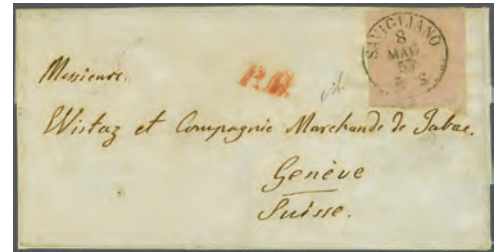 SAVIGLIANO
8
MAG
53
S.
Messieurs
P.D.
Wistaz et Compagnie Marchands de Tabac,
Genève
Suisse.